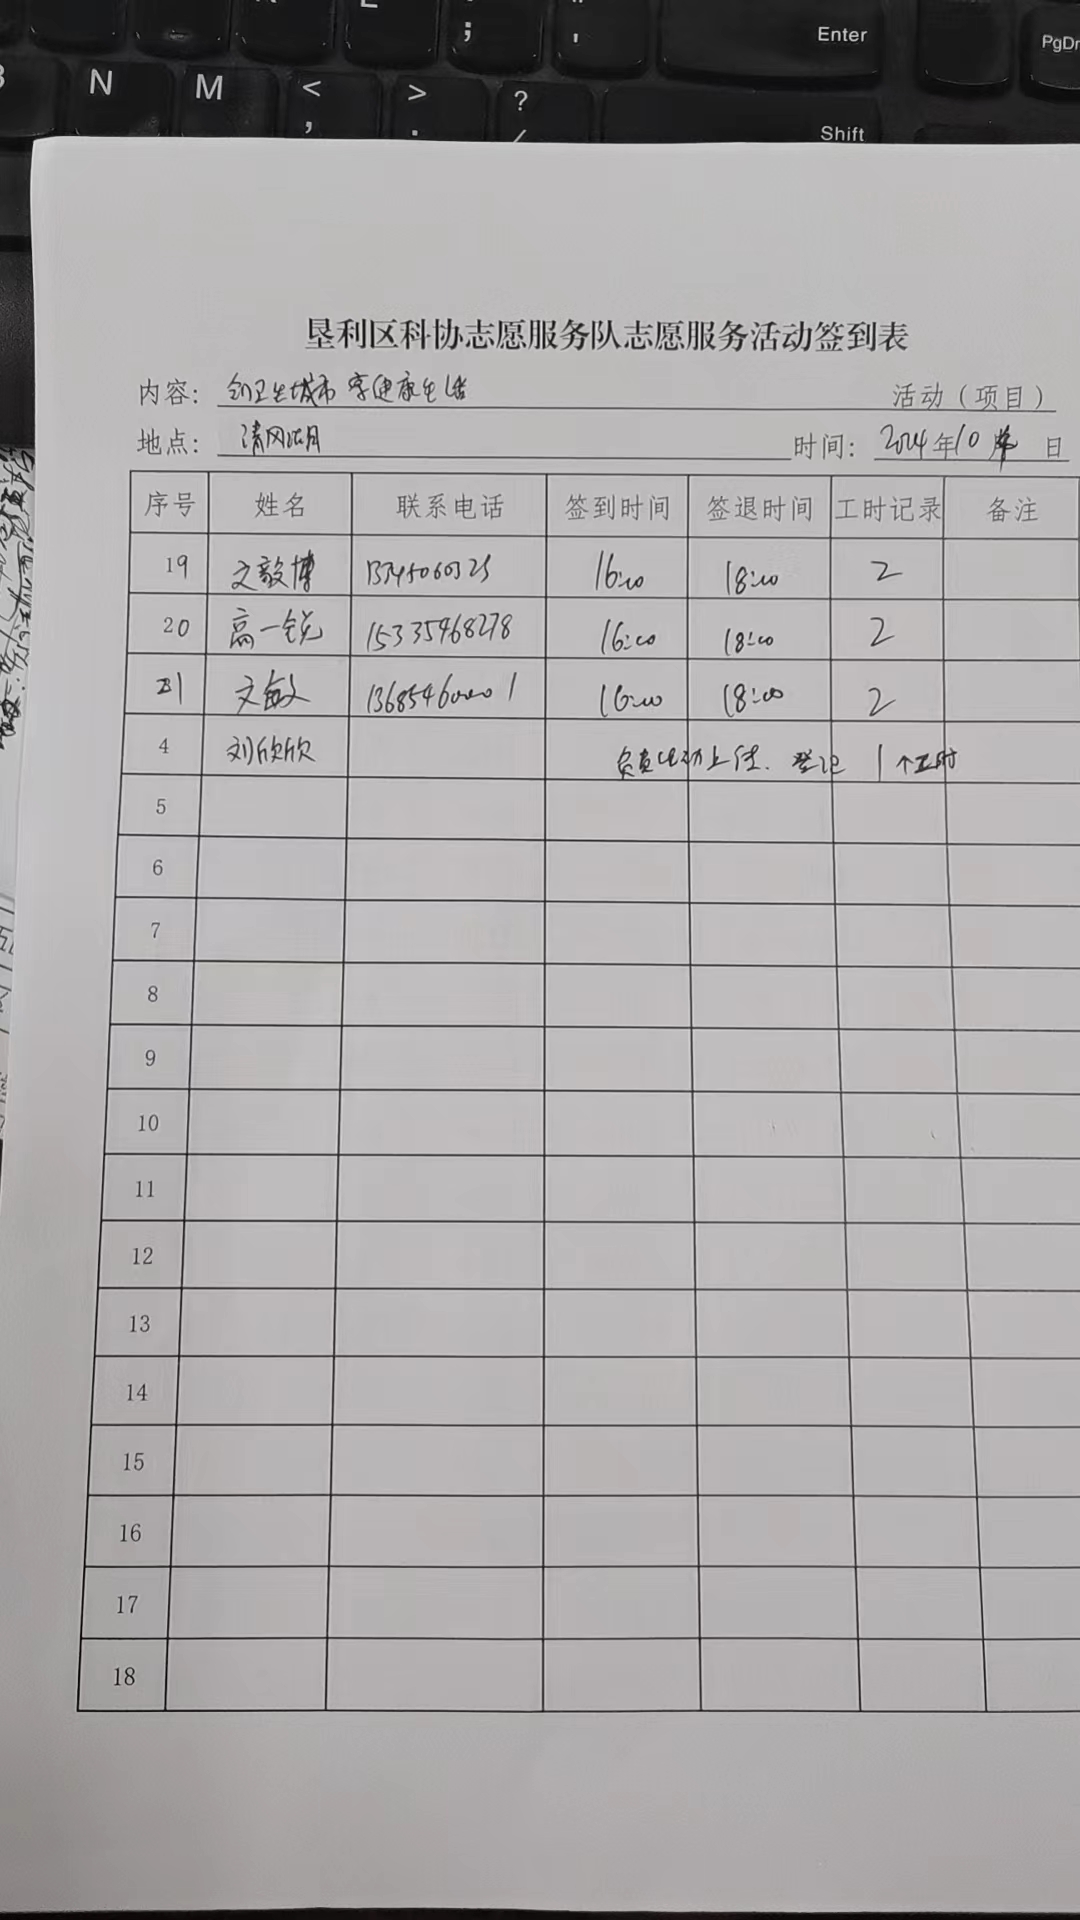 Enter
PgDn
N M < , > . ? /
Shift
垦利区科协志愿服务队志愿服务活动签到表
内容：创卫生城市 享健康生活 活动（项目）
地点：清风湖 时间：2024年10月 日
序号 姓名 联系电话 签到时间 签退时间 工时记录 备注
19 文毅博 16:00 18:00 2
20 高一锐 15335468278 16:00 18:00 2
21 文敏 13685460001 16:00 18:00 2
4 刘欣欣 负责活动上传、登记 1个工时
5
6
7
8
9
10
11
12
13
14
15
16
17
18